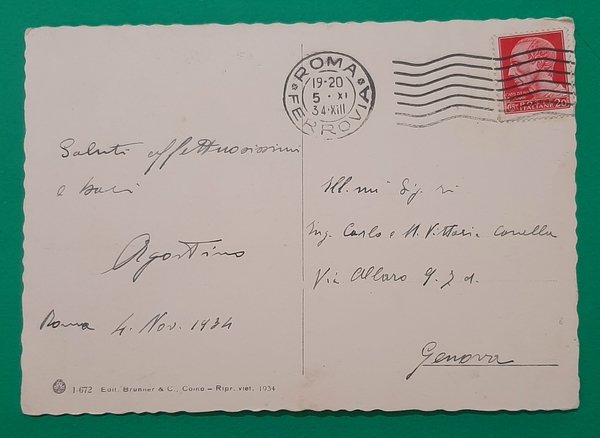 Saluti affettuosissimi
e baci
Agostino
Roma 4. Nov. 1934
1-672 Edit. Brunner & C., Como - Ripr. viet. 1934
ROMA
19-20
5 · XI
34·XIII
FERROVIA
POSTE ITALIANE 20
Ill.mi Sig.ri
Ing. Carlo e M. Vittoria Canella
Via Albaro 9.7 d.
Genova